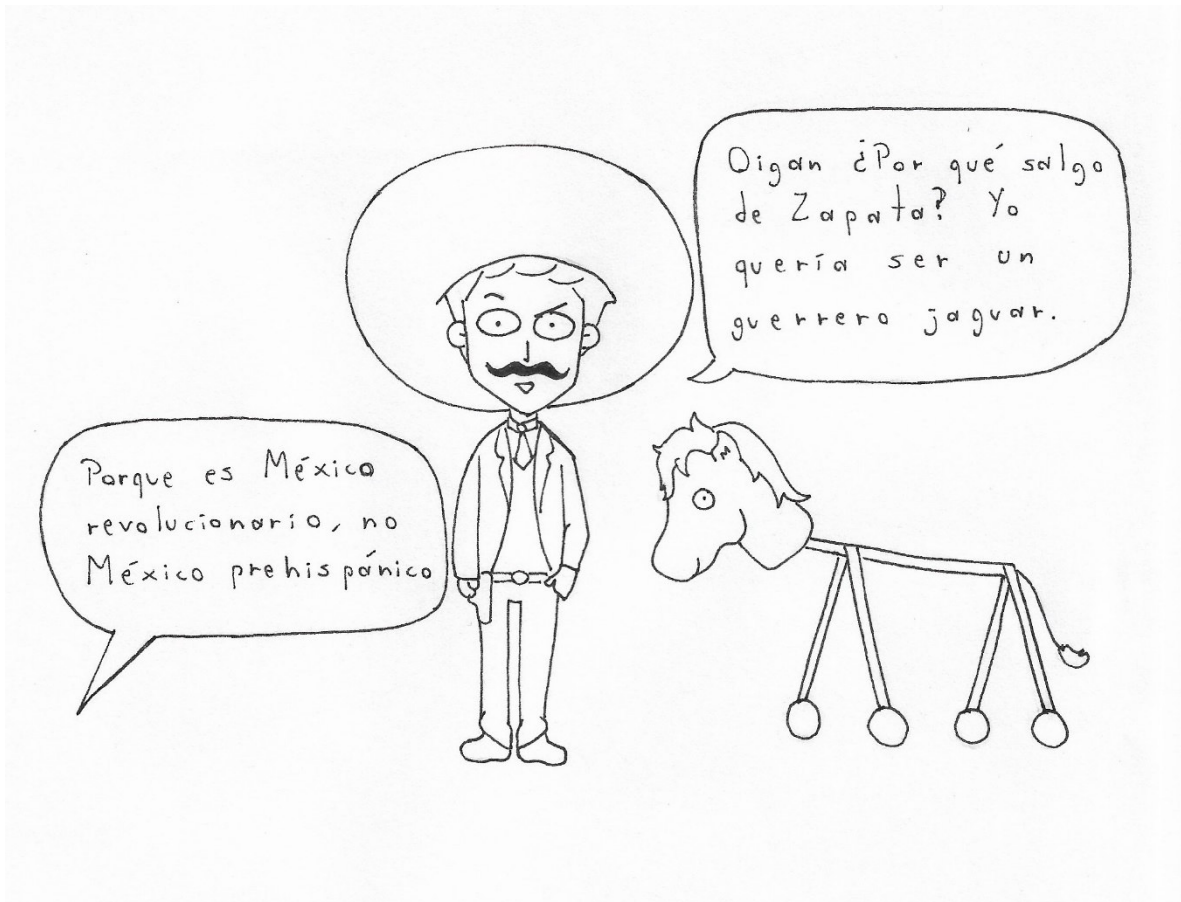 Oigan ¿Por qué salgo
de Zapata? Yo
quería ser un
guerrero jaguar.
Porque es México
revolucionario, no
México prehispánico